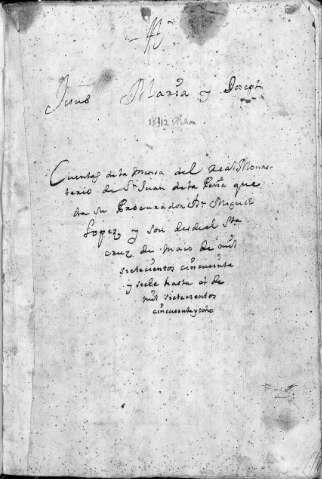 Jesus Maria y Joseph
Cuentas de la mensa del Real Monas-
terio de Sn Juan de la Peña que
ha su Procurador Dn Miguel
Lopez y son desde el Sta
cruz de maio de mil
sietecientos cinquenta
y siete hasta de
mil sietecientos
cinquenta y ocho